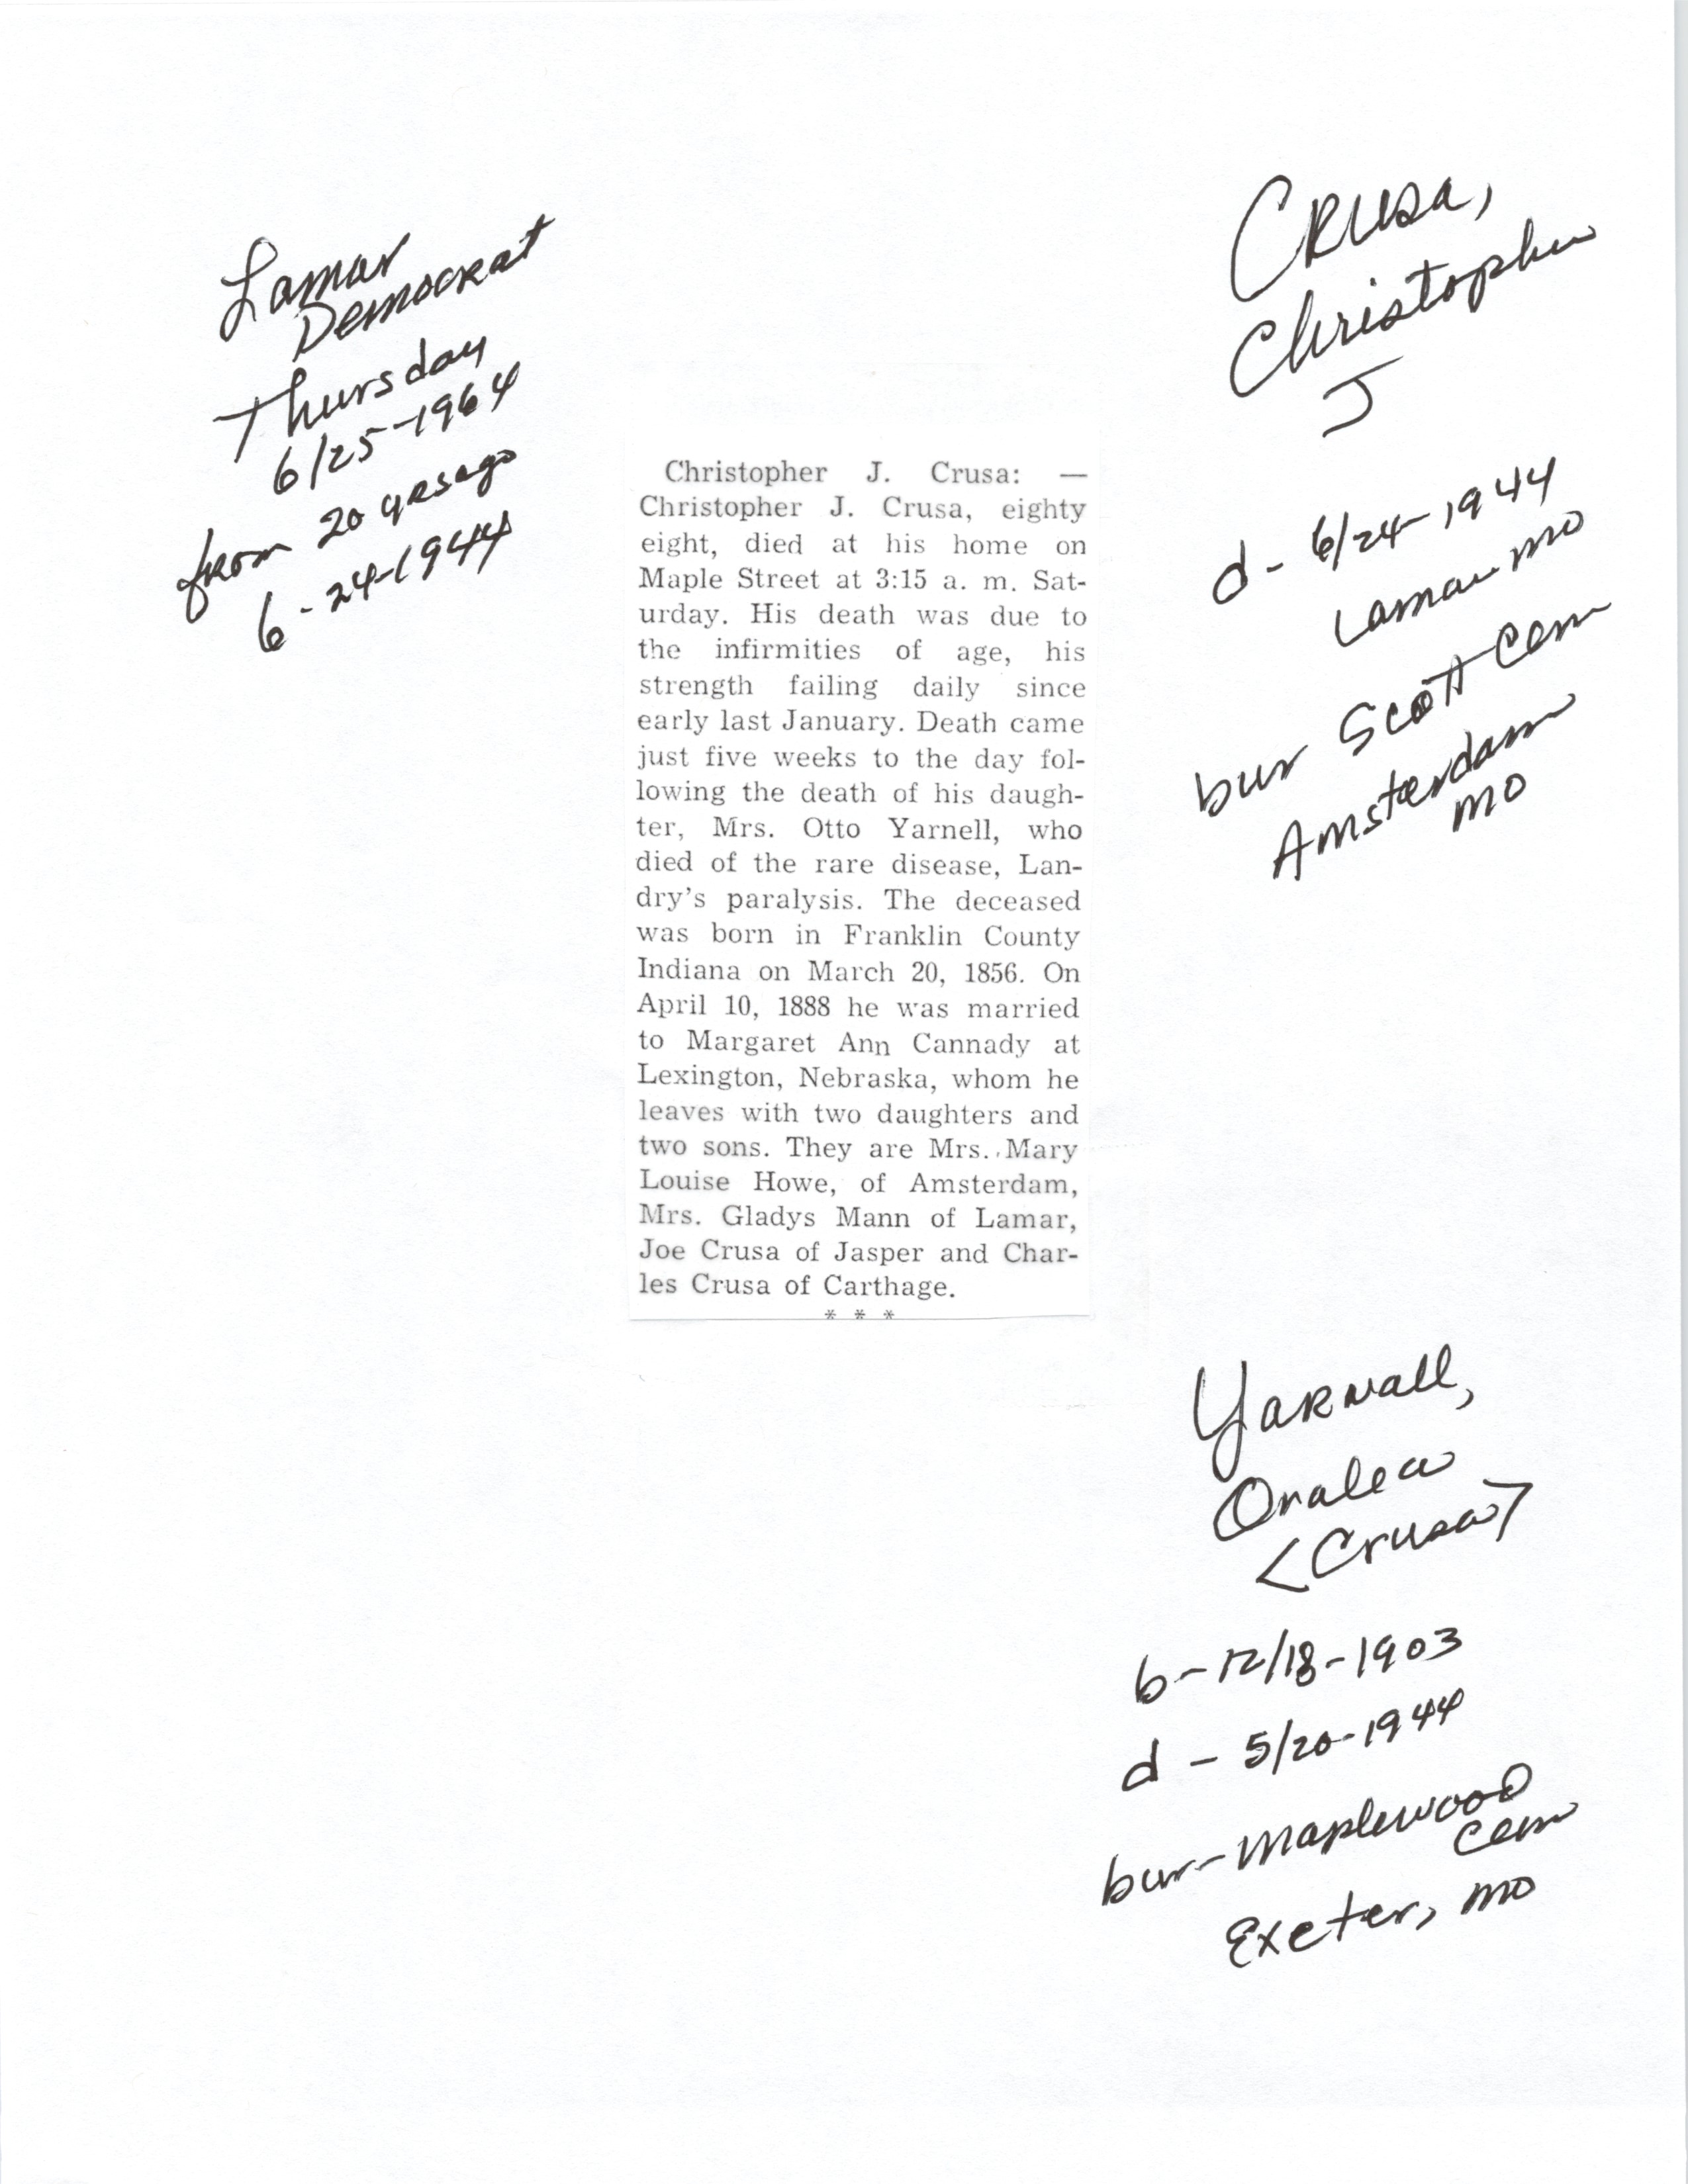 Lamar
Democrat
Thursday
6/25-1964
from 20 yrs ago
6-24-1944
Crusa,
Christopher
J
d- 6/24-1944
Lamar mo
bur Scott Cem
Amsterdam
mo
Christopher J. Crusa: —
Christopher J. Crusa, eighty
eight, died at his home on
Maple Street at 3:15 a. m. Sat-
urday. His death was due to
the infirmities of age, his
strength failing daily since
early last January. Death came
just five weeks to the day fol-
lowing the death of his daugh-
ter, Mrs. Otto Yarnell, who
died of the rare disease, Lan-
dry's paralysis. The deceased
was born in Franklin County
Indiana on March 20, 1856. On
April 10, 1888 he was married
to Margaret Ann Cannady at
Lexington, Nebraska, whom he
leaves with two daughters and
two sons. They are Mrs. Mary
Louise Howe, of Amsterdam,
Mrs. Gladys Mann of Lamar,
Joe Crusa of Jasper and Char-
les Crusa of Carthage.
* * *
Yarnall,
Oralea
<Crusa>
b-12/18-1903
d - 5/20-1944
bur-Maplewood
Cem
Exeter, mo